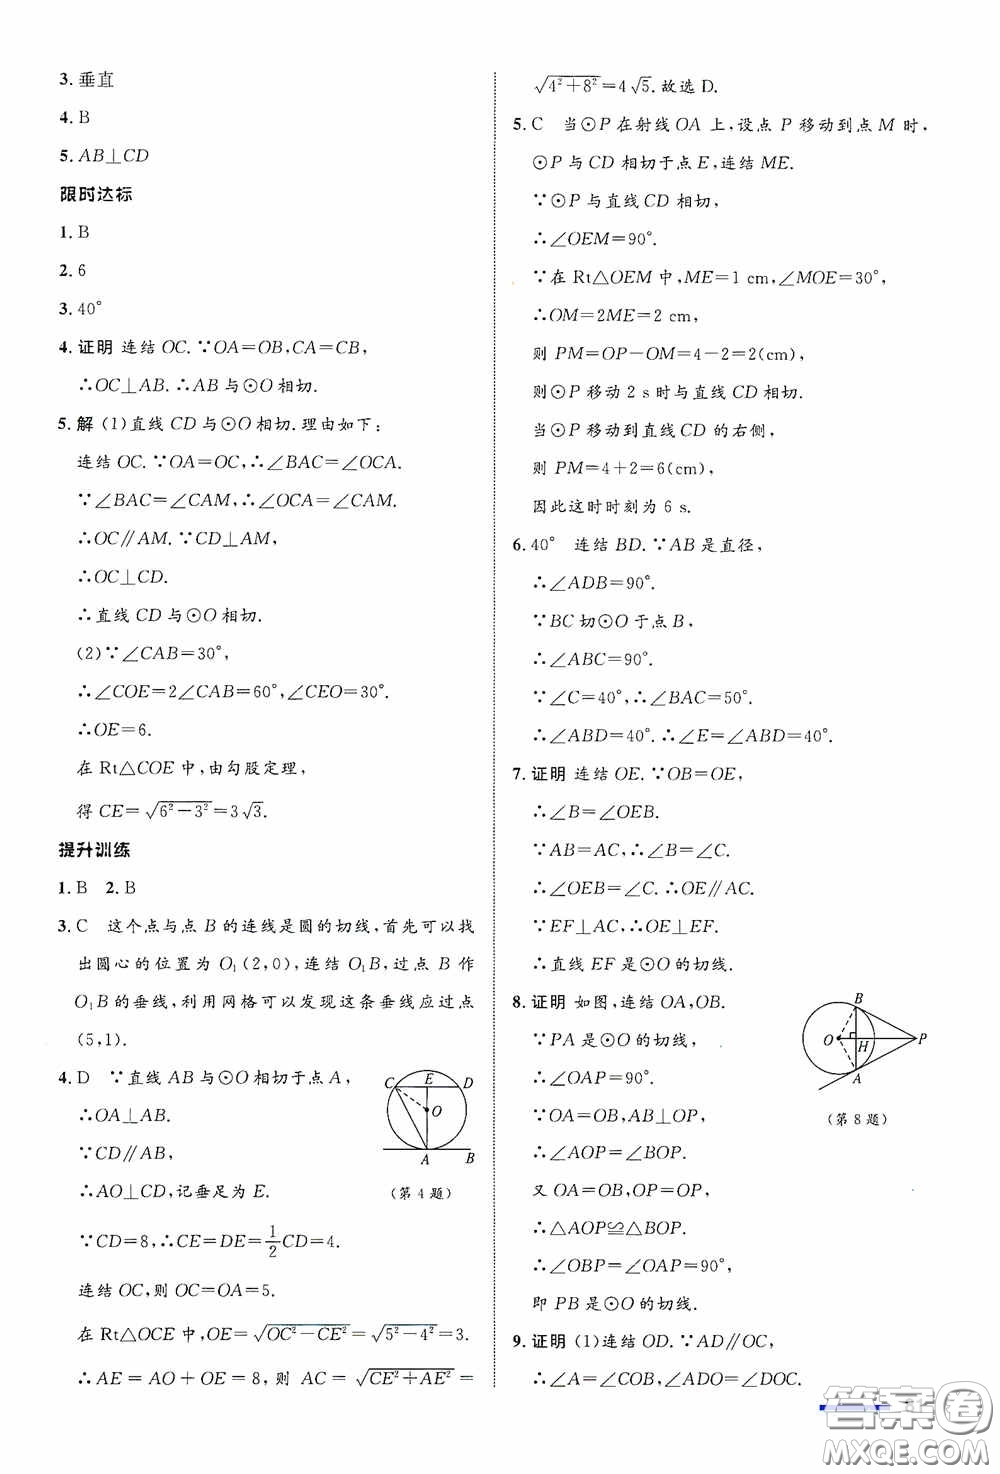 3. 垂直
4. B
5. AB⊥CD
限时达标
1. B
2. 6
3. 40°
4. 证明 连结 OC. ∵OA=OB,CA=CB,
∴OC⊥AB. ∴AB 与⊙O 相切.
5. 解 (1)直线 CD 与⊙O 相切. 理由如下:
连结 OC. ∵OA=OC,∴∠BAC=∠OCA.
∵∠BAC=∠CAM,∴∠OCA=∠CAM.
∴OC∥AM. ∵CD⊥AM,
∴OC⊥CD.
∴直线 CD 与⊙O 相切.
(2)∵∠CAB=30°,
∴∠COE=2∠CAB=60°,∠CEO=30°.
∴OE=6.
在 Rt△COE 中,由勾股定理,
得 CE=√(6²-3²)=3√3.
提升训练
1. B 2. B
3. C 这个点与点 B 的连线是圆的切线,首先可以找
出圆心的位置为 O₁(2,0),连结 O₁B,过点 B 作
O₁B 的垂线,利用网格可以发现这条垂线应过点
(5,1).
4. D ∵直线 AB 与⊙O 相切于点 A,
∴OA⊥AB.
∵CD∥AB,
∴AO⊥CD,记垂足为 E.
∵CD=8,∴CE=DE=1/2CD=4.
连结 OC,则 OC=OA=5.
在 Rt△OCE 中,OE=√(OC²-CE²)=√(5²-4²)=3.
∴AE=AO+OE=8,则 AC=√(CE²+AE²)=
C E D
O
A B
(第 4 题)
√(4²+8²)=4√5. 故选 D.
5. C 当⊙P 在射线 OA 上,设点 P 移动到点 M 时,
⊙P 与 CD 相切于点 E,连结 ME.
∵⊙P 与直线 CD 相切,
∴∠OEM=90°.
∵在 Rt△OEM 中,ME=1 cm,∠MOE=30°,
∴OM=2ME=2 cm,
则 PM=OP-OM=4-2=2(cm),
则⊙P 移动 2 s 时与直线 CD 相切.
当⊙P 移动到直线 CD 的右侧,
则 PM=4+2=6(cm),
因此这时时刻为 6 s.
6. 40° 连结 BD. ∵AB 是直径,
∴∠ADB=90°.
∵BC 切⊙O 于点 B,
∴∠ABC=90°.
∵∠C=40°,∴∠BAC=50°.
∴∠ABD=40°. ∴∠E=∠ABD=40°.
7. 证明 连结 OE. ∵OB=OE,
∴∠B=∠OEB.
∵AB=AC,∴∠B=∠C.
∴∠OEB=∠C. ∴OE∥AC.
∵EF⊥AC,∴OE⊥EF.
∴直线 EF 是⊙O 的切线.
8. 证明 如图,连结 OA,OB.
∵PA 是⊙O 的切线,
∴∠OAP=90°.
∵OA=OB,AB⊥OP,
∴∠AOP=∠BOP.
又 OA=OB,OP=OP,
∴△AOP≌△BOP.
∴∠OBP=∠OAP=90°,
即 PB 是⊙O 的切线.
B
O H P
A
(第 8 题)
9. 证明 (1)连结 OD. ∵AD∥OC,
∴∠A=∠COB,∠ADO=∠DOC.
答案卷
MXQE.COM